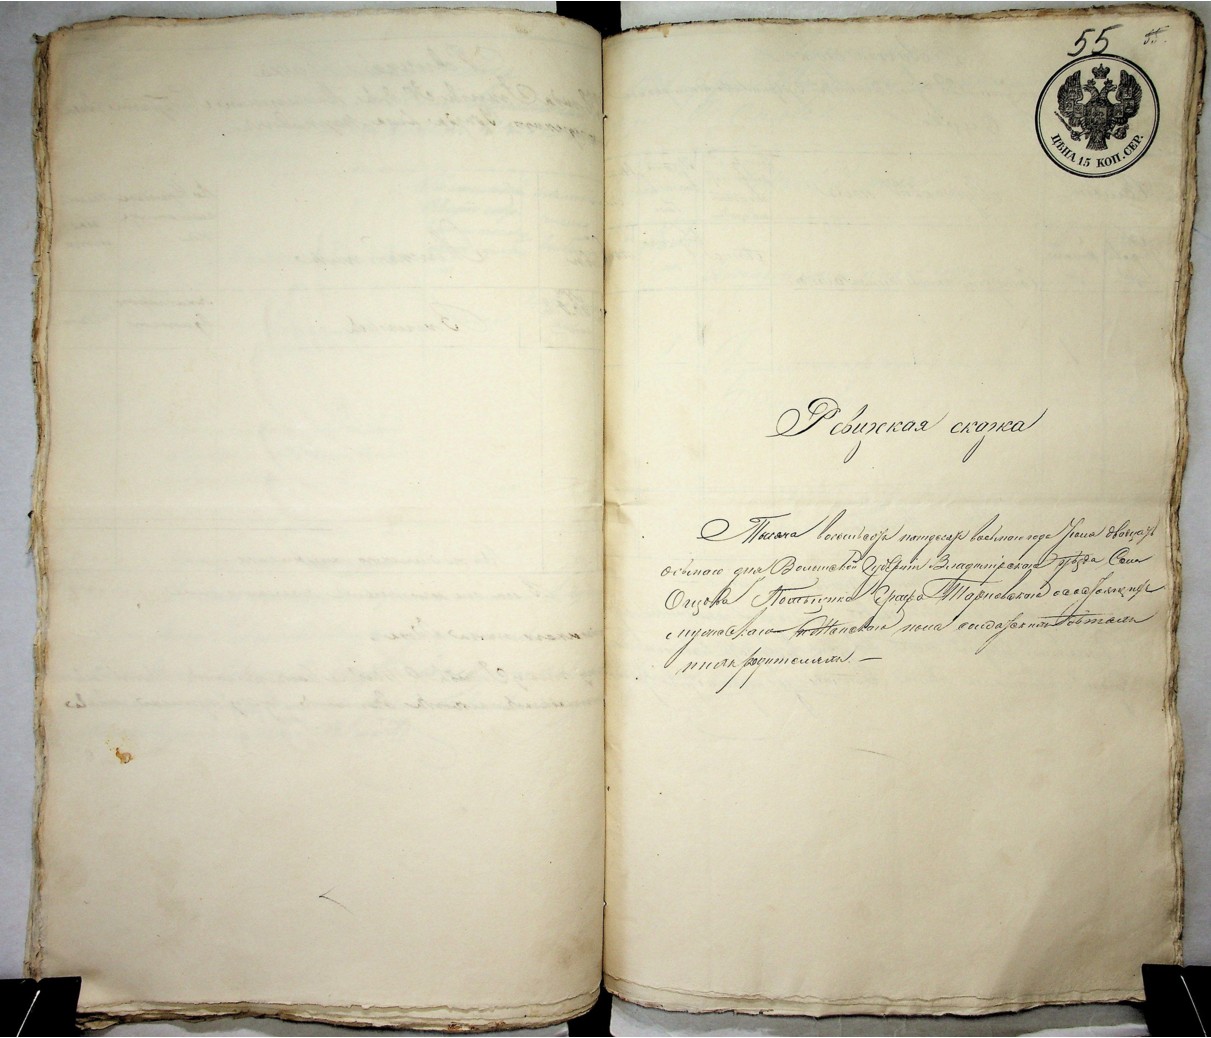 55
55.
ЦѢНА 15 КОП. СЕР.
Ревижская скажа
Тысяча восемьсотъ пятдесятъ восьмаго года Іюля двадцать
осьмаго дня Волынской Губерніи Владимірскаго Уѣзда Села
Помѣщика Графа Тарновскаго о состоящихъ
мужескаго и Женскаго пола солдатскихъ
родителяхъ. —